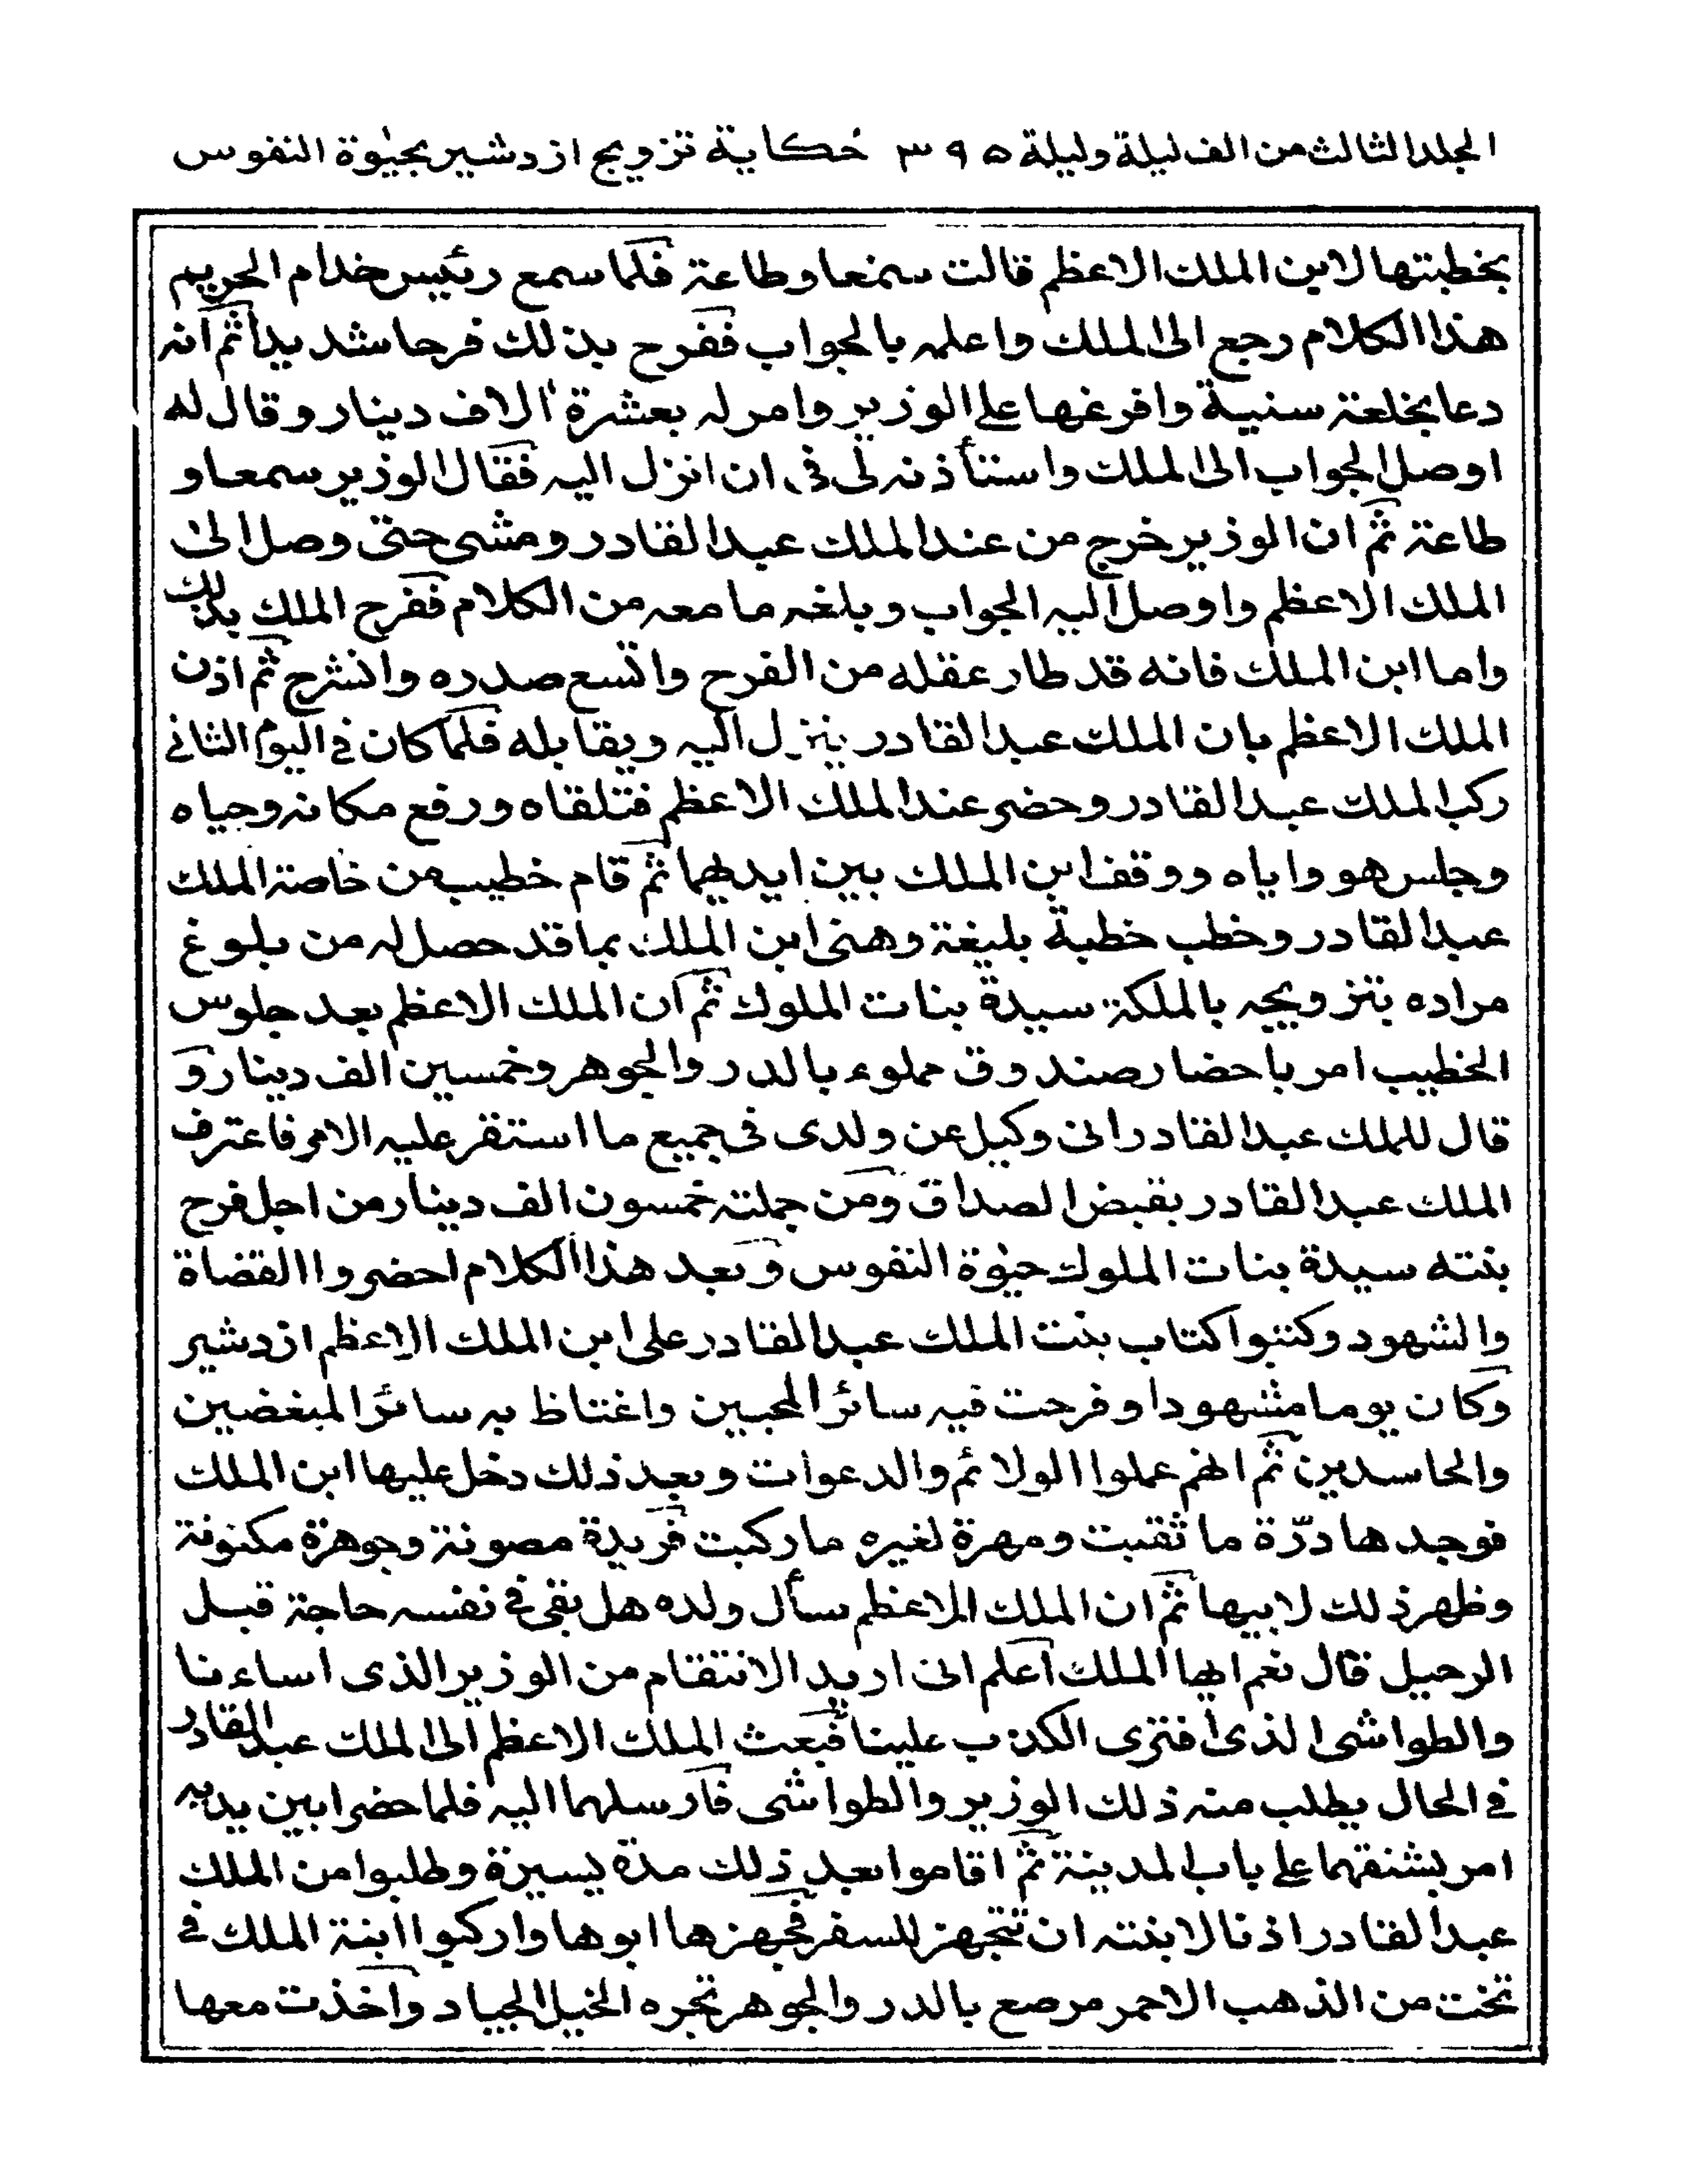 الجلد الثالث من الف ليلة وليلة ٣٩٥ حكاية تزويج ازدشير بحيٰوة النفوس
بخطبتها لابن الملك الاعظم قالت سمعا وطاعة فلما سمع رئيس خدام الحريم
هذا الكلام رجع الى الملك واعلمه بالجواب ففرح بذلك فرحا شديدا ثم انه
دعا بخلعة سنية وافرغها على الوزير وامر له بعشرة الاف دينار وقال له
اوصل الجواب الى الملك واستأذنه لى فى ان انزل اليه فقال الوزير سمعا و
طاعة ثم ان الوزير خرج من عند الملك عبد القادر ومشى حتى وصل الى
الملك الاعظم واوصل اليه الجواب وبلغه ما معه من الكلام ففرح الملك بذلك
واما ابن الملك فانه قد طار عقله من الفرح واتسع صدره وانشرح ثم اذن
الملك الاعظم بان الملك عبد القادر ينزل اليه ويقابله فلما كان فى اليوم الثانى
ركب الملك عبد القادر وحضر عند الملك الاعظم فتلقاه ورفع مكانه وحياه
وجلس هو واياه ووقف ابن الملك بين ايديهما ثم قام خطيب من خاصة الملك
عبد القادر وخطب خطبة بليغة وهنى ابن الملك بما قد حصل له من بلوغ
مراده بتزويجه بالملكة سيدة بنات الملوك ثم ان الملك الاعظم بعد جلوس
الخطيب امر باحضار صندوق مملوء بالدر والجوهر وخمسين الف دينار و
قال للملك عبد القادر انى وكيل عن ولدى فى جميع ما استقر عليه الامر فاعترف
الملك عبد القادر بقبض الصداق ومن جملته خمسون الف دينار من اجل فرح
بنته سيدة بنات الملوك حيٰوة النفوس وبعد هذا الكلام احضروا القضاة
والشهود وكتبوا كتاب بنت الملك عبد القادر على ابن الملك الاعظم ازدشير
وكان يوما مشهودا وفرحت فيه سائر المحبين واغتاظ به سائر المبغضين
والحاسدين ثم انهم عملوا الولائم والدعوات وبعد ذلك دخل عليها ابن الملك
فوجدها درّة ما ثقبت ومهرة لغيره ما ركبت فريدة مصونة وجوهرة مكنونة
وظهر ذلك لابيها ثم ان الملك الاعظم سأل ولده هل بقى فى نفسه حاجة قبل
الرحيل قال نعم ايها الملك اعلم انى اريد الانتقام من الوزير الذى اساءنا
والطواشى الذى افترى الكذب علينا فبعث الملك الاعظم الى الملك عبد القادر
فى الحال يطلب منه ذلك الوزير والطواشى فارسلهما اليه فلما حضرا بين يديه
امر بشنقهما على باب المدينة ثم اقاموا بعد ذلك مدة يسيرة وطلبوا من الملك
عبد القادر اذنا لابنته ان تتجهز للسفر فجهزها ابوها واركبوا ابنة الملك فى
تخت من الذهب الاحمر مرصع بالدر والجوهر تجره الخيل الجياد واخذت معها